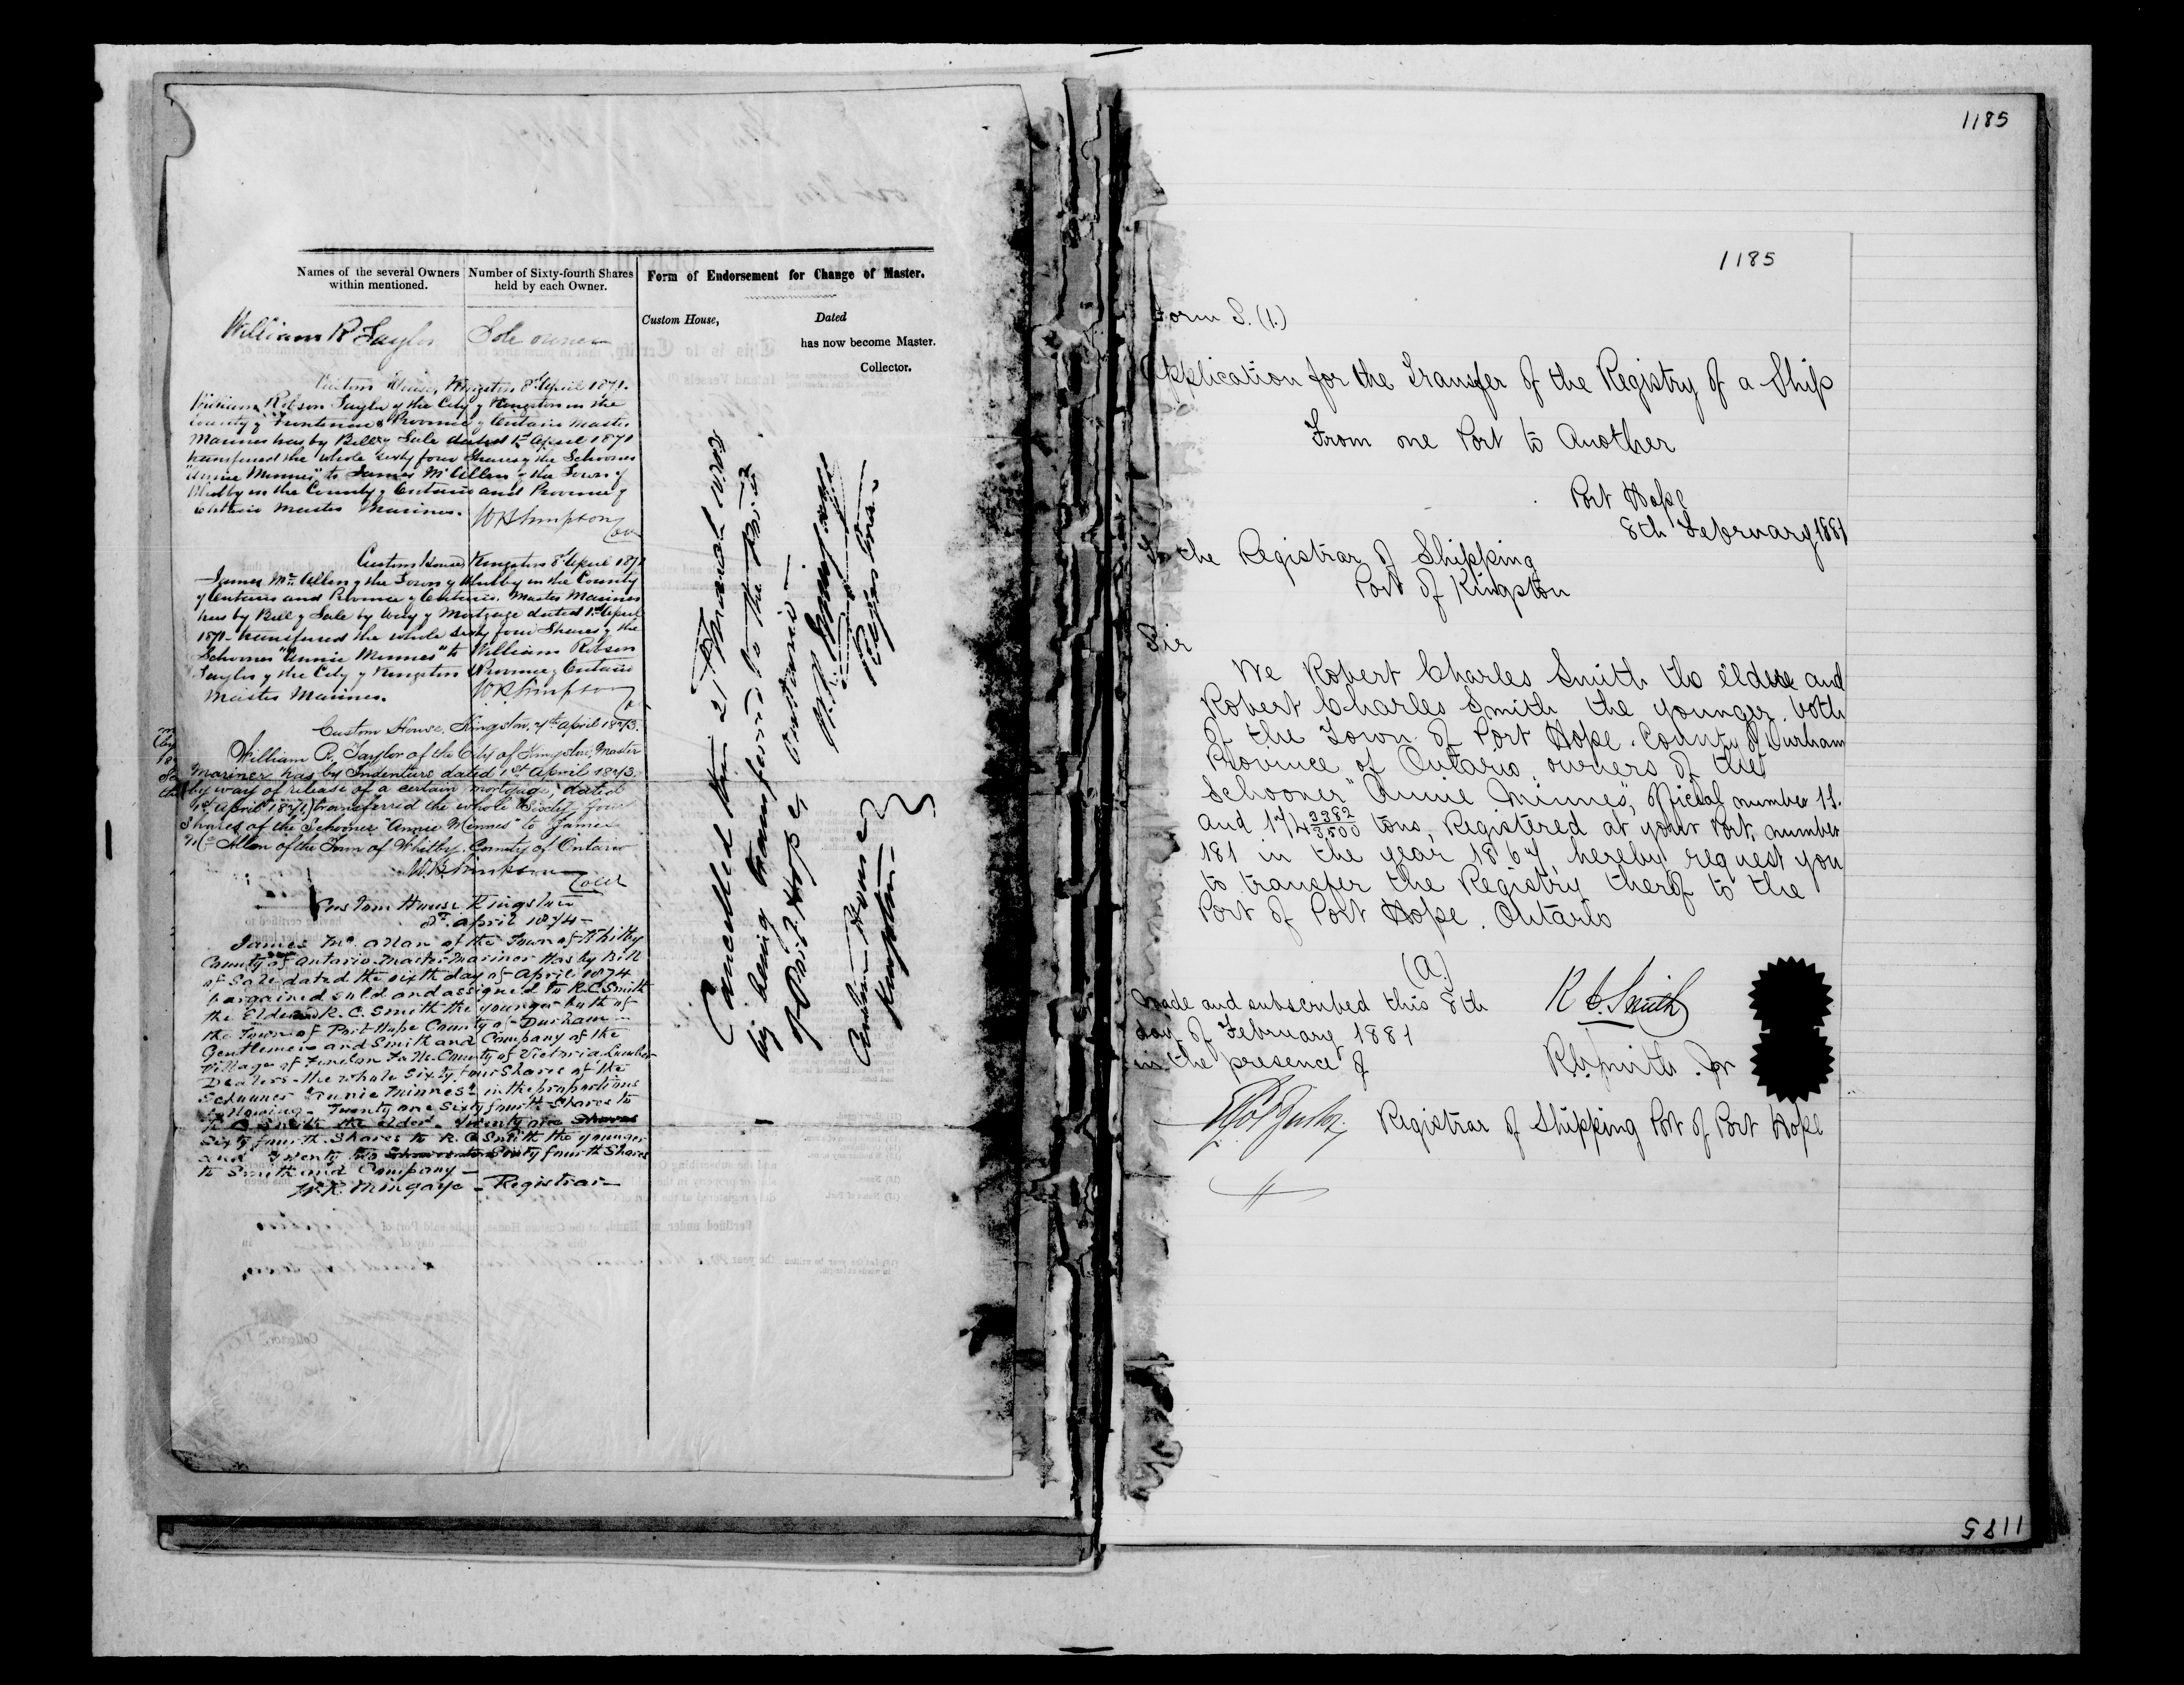 Names of the several Owners within mentioned.
Number of Sixty-fourth Shares held by each Owner.
Form of Endorsement for Change of Master.
Custom House,
Dated
has now become Master.
Collector.
William R Taylor
Sole owner
Custom House, Kingston 8th April 1871.
William Robson Taylor of the City of Kingston in the
County of Frontenac & Province of Ontario Master
Mariner has by Bill of Sale dated 1st April 1871
transferred the whole sixty four Shares of the Schooner
"Annie Minnes" to James McAllen of the Town of
Whitby in the County of Ontario and Province of
Ontario Master Mariner.
W R Simpson
Coll
Custom House Kingston 8th April 1871
James McAllen of the Town of Whitby in the County
of Ontario and Province of Ontario. Master Mariner
has by Bill of Sale by way of Mortgage dated 1st April
1871 transferred the whole sixty four Shares of the
Schooner "Annie Minnes" to William Robson
Taylor of the City of Kingston & Province of Ontario
Master Mariner.
W R Simpson
Custom House, Kingston, 7th April 1873.
William R. Taylor of the City of Kingston, Master
Mariner has, by Indenture dated 1st April 1873
(by way of release of a certain mortgage, dated
1st April 1871) transferred the whole Sixty four
Shares of the Schooner "Annie Minnes" to James
McAllen of the Town of Whitby. County of Ontario
W R Simpson
Coll
Custom House Kingston
8th April 1874 -
James Mc Allan of the Town of Whitby
County of Ontario Master Mariner Has by Bill
of Sale dated the sixth day of April 1874
bargained sold and assigned to R. C. Smith
the Elder and R. C. Smith the younger both of
the Town of Port Hope County of Durham
Gentlemen and Smith and Company of the
Village of Fenelon Falls County of Victoria Lumber
Dealers - the whole Sixty four Shares of the
Schooner Annie Minnes in the proportions
following - Twenty one Sixty fourth Shares to
R C Smith the elder - Twenty one Shares
Sixty fourth Shares to R. C Smith the younger
and Twenty two Sixty fourth Shares
to Smith and Company -
W. R. Mingaye - Registrar
Cancelled this 21st March 1882
by being transferred to the Port
of Port Hope, Ontario -
W. R. Mingaye
Registrar
Custom House
Kingston
1185
1185
Form S. (1.)
Application for the Transfer of the Registry of a Ship
From one Port to Another
Port Hope
8th February 1881
To the Registrar of Shipping
Port of Kingston
Sir
We Robert Charles Smith the elder and
Robert Charles Smith the younger. both
of the Town of Port Hope. County of Durham
Province of Ontario. owners of the
Schooner "Annie Minnes", Official number 11.
and 174 3382/3500 tons, Registered at your Port, number
181 in the year 1867, hereby request you
to transfer the Registry therof to the
Port of Port Hope. Ontario
(a.)
Made and subscribed this 8th
day of February 1881
in the presence of
R C. Smith
R. C. Smith. Jr
Registrar of Shipping Port of Port Hope
1185